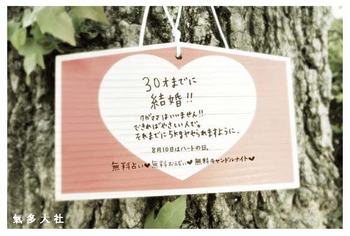 30才までに
結婚!!
ワガママはいいません!!
できればやさしい人で。
それまでに5kgやせられますように。
8月10日はハートの日。
無料占い♥無料おふだい♥無料キャンドルナイト♥
氣多大社